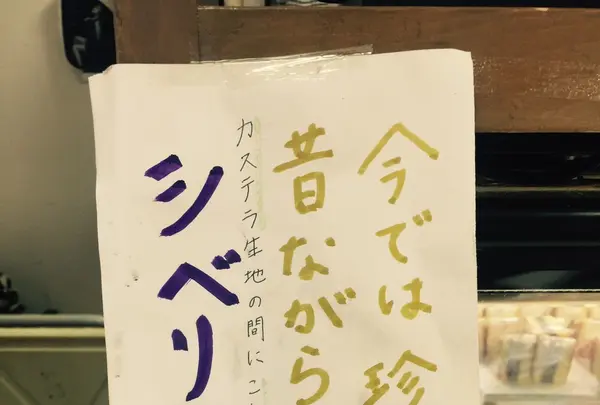 今では珍
昔ながら
カステラ生地の間にこ
シベリ